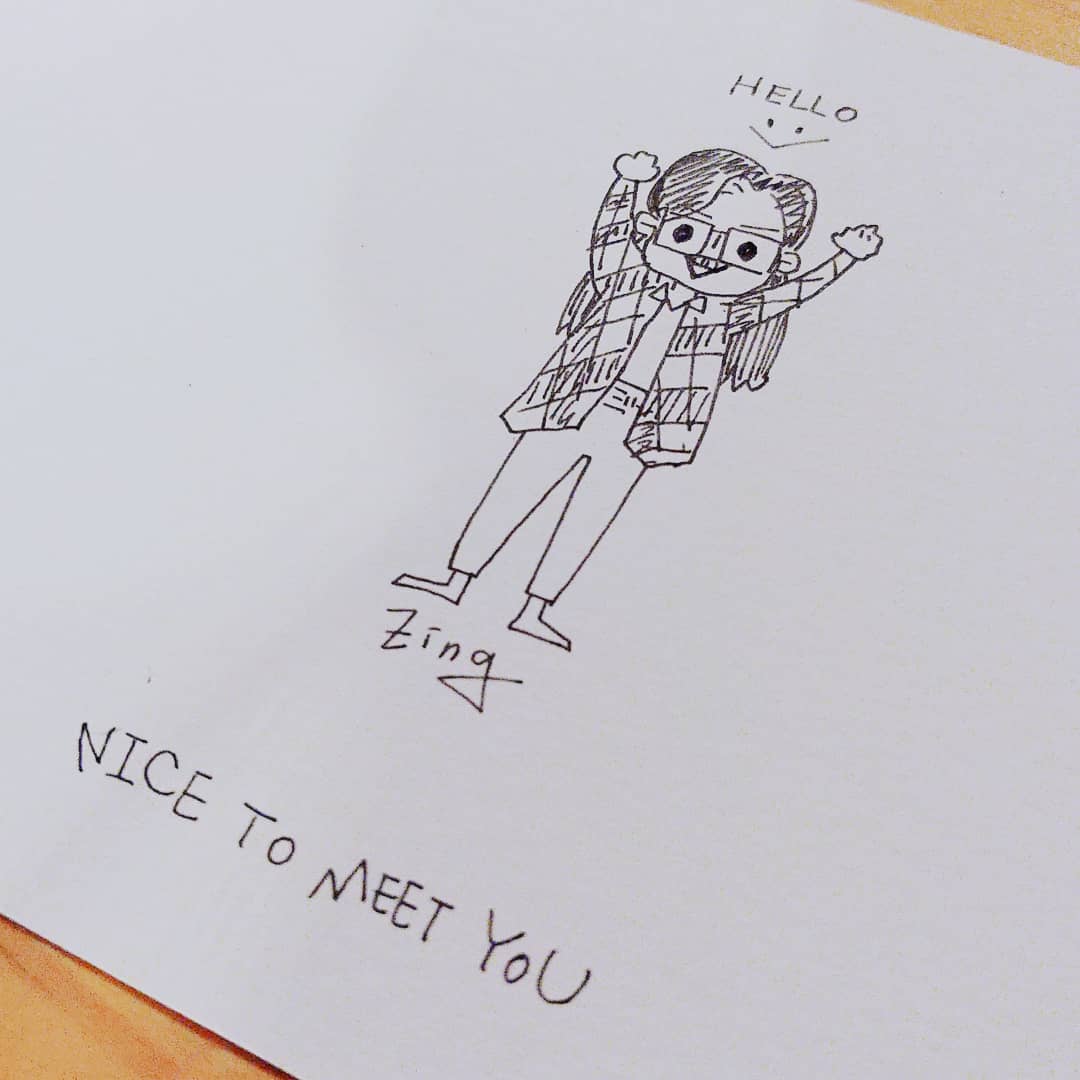 HELLO
Zing
NICE TO MEET YOU